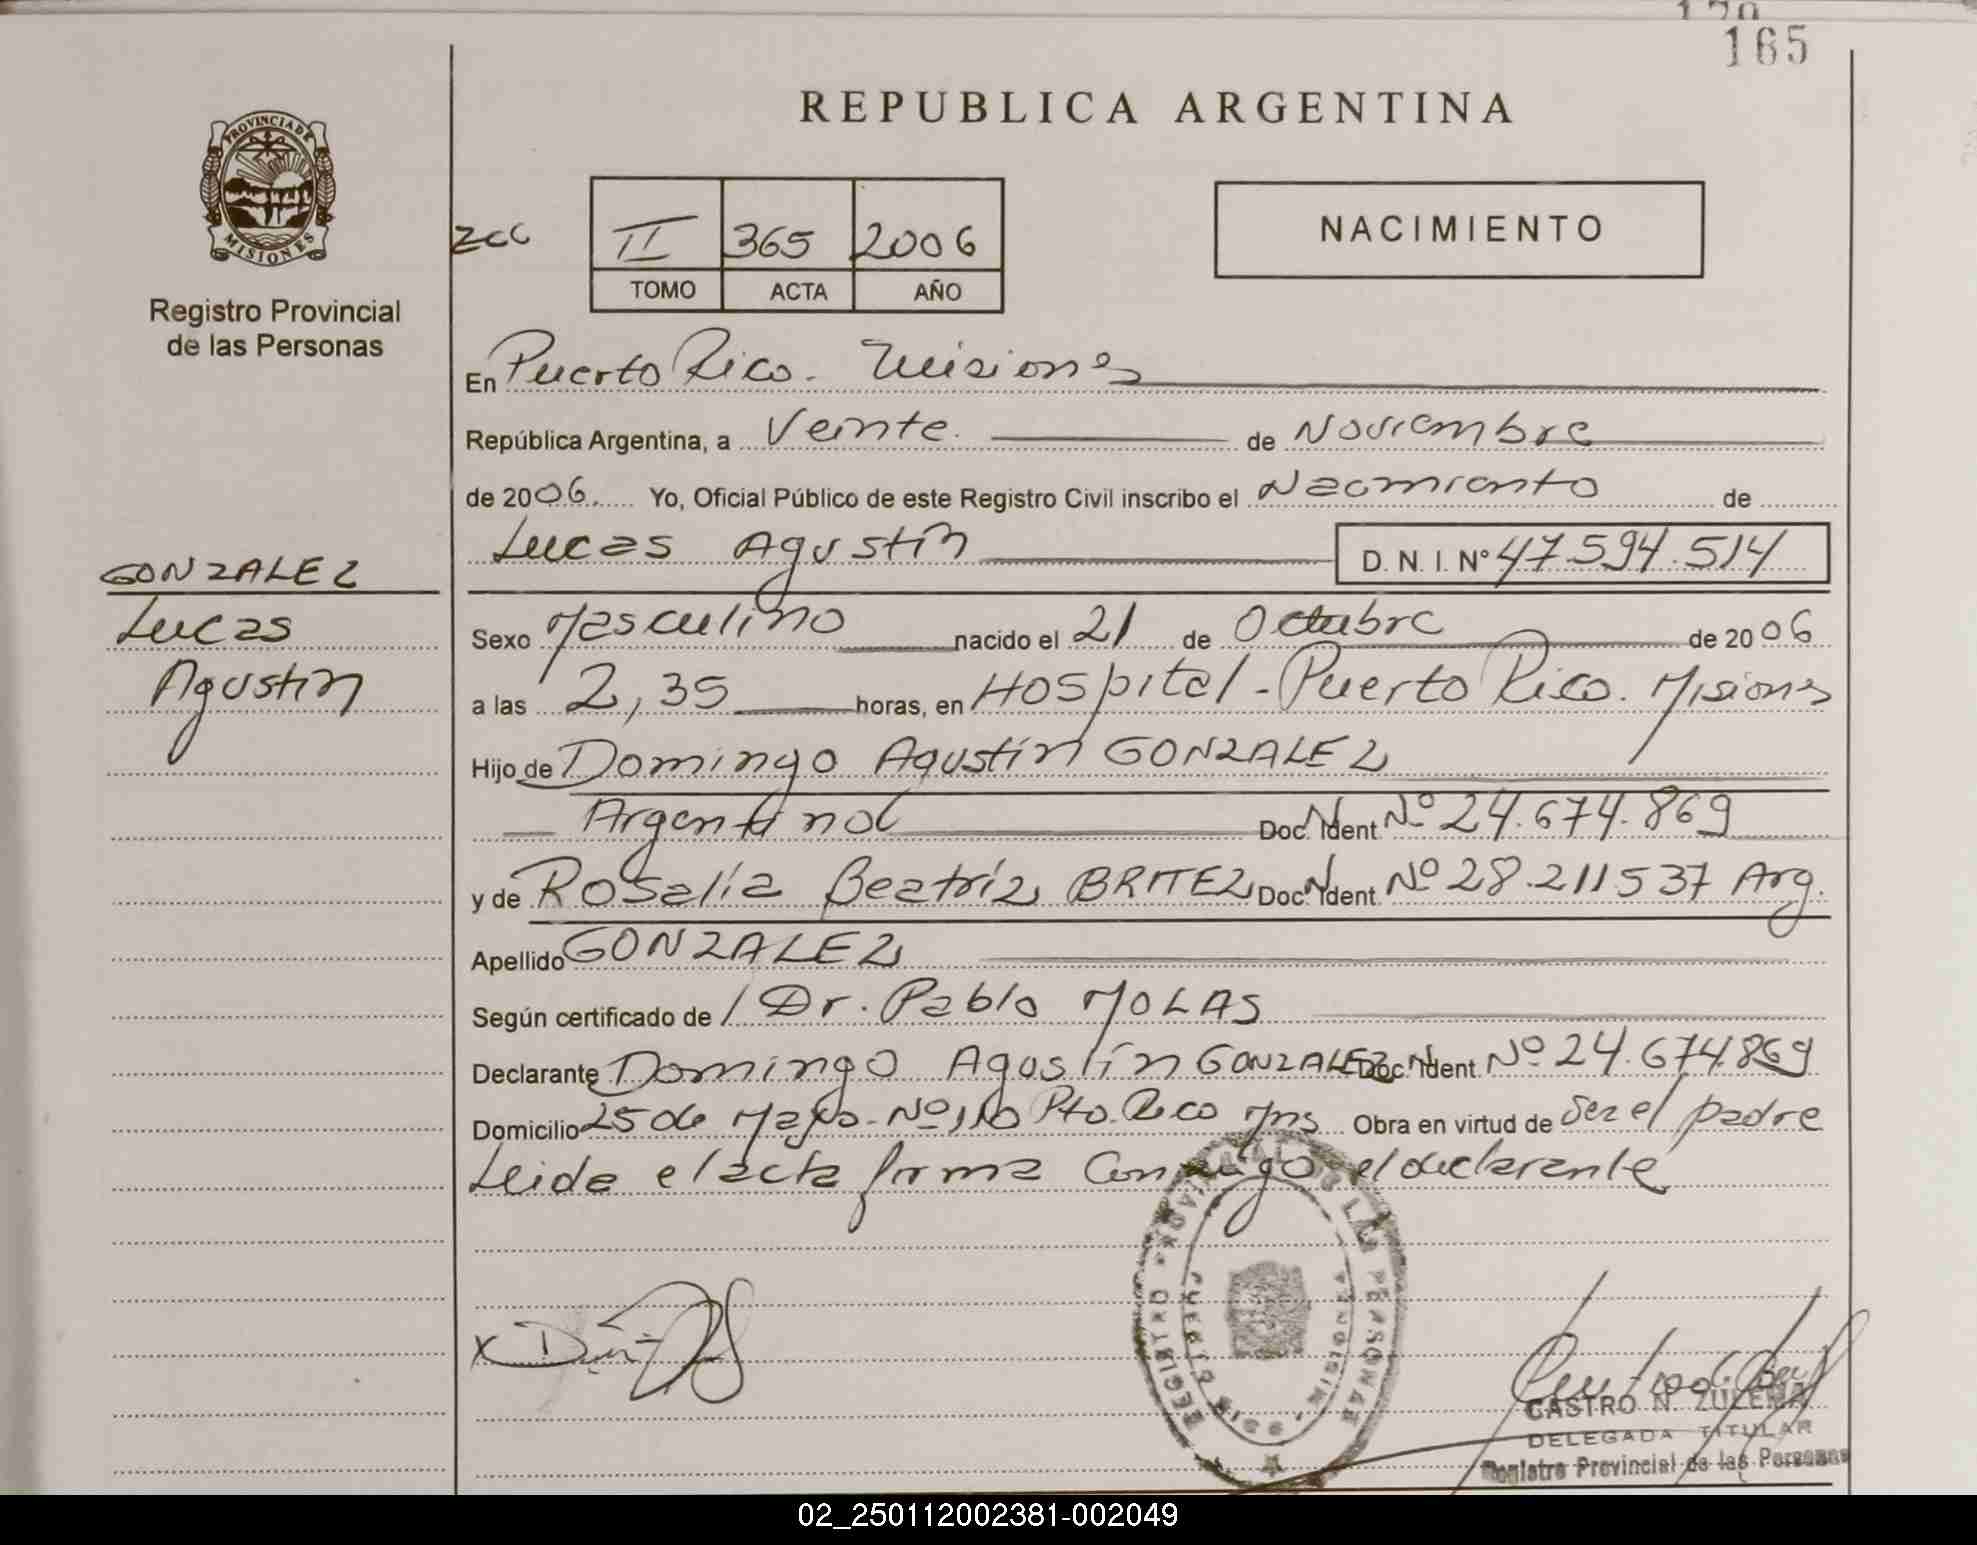 165
PROVINCIA DE
MISIONES
Registro Provincial
de las Personas
REPUBLICA ARGENTINA
II 365 2006
TOMO ACTA AÑO
NACIMIENTO
En Puerto Rico. Misiones
República Argentina, a Veinte. de Noviembre
de 2006. Yo, Oficial Público de este Registro Civil inscribo el Nacimiento de
Lucas Agustín D. N. I. Nº 47.594.514
GONZALEZ
Lucas
Agustín
Sexo Masculino nacido el 21 de Octubre de 2006
a las 2,35 horas, en Hospital - Puerto Rico. Misiones
Hijo de Domingo Agustín GONZALEZ
Argentino Doc. Ident. Nº 24.674.869
y de Rosalía Beatríz BRITEZ Doc. Ident. Nº 28.211537 Arg.
Apellido GONZALEZ
Según certificado de Dr. Pablo MOLAS
Declarante Domingo Agustín GONZALEZ Doc. Ident. Nº 24.674.869
Domicilio 25 de Mayo - Nº Pto. Rico Mns Obra en virtud de ser el padre
Leida el acta firma Conmigo el declarante
REGISTRO PROVINCIAL DE LAS PERSONAS
PUERTO RICO MISIONES
CASTRO N. ZULEMA
DELEGADA TITULAR
Registro Provincial de las Personas
02_250112002381-002049